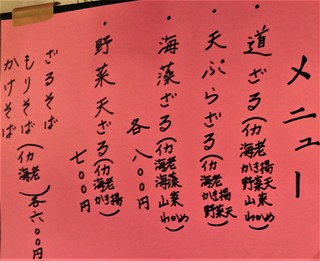 メニュー
・道ざる(イカ海老
かき揚
野菜天
山菜
わかめ)
・天ぷらざる(イカ
海老
かき揚
野菜天)
・海藻ざる(イカ
海老
海藻
山菜
わかめ)
各八〇〇円
・野菜天ざる(イカ
海老
かき揚)
七〇〇円
ざるそば
もりそば(イカ
海老)各六〇〇円
かけそば